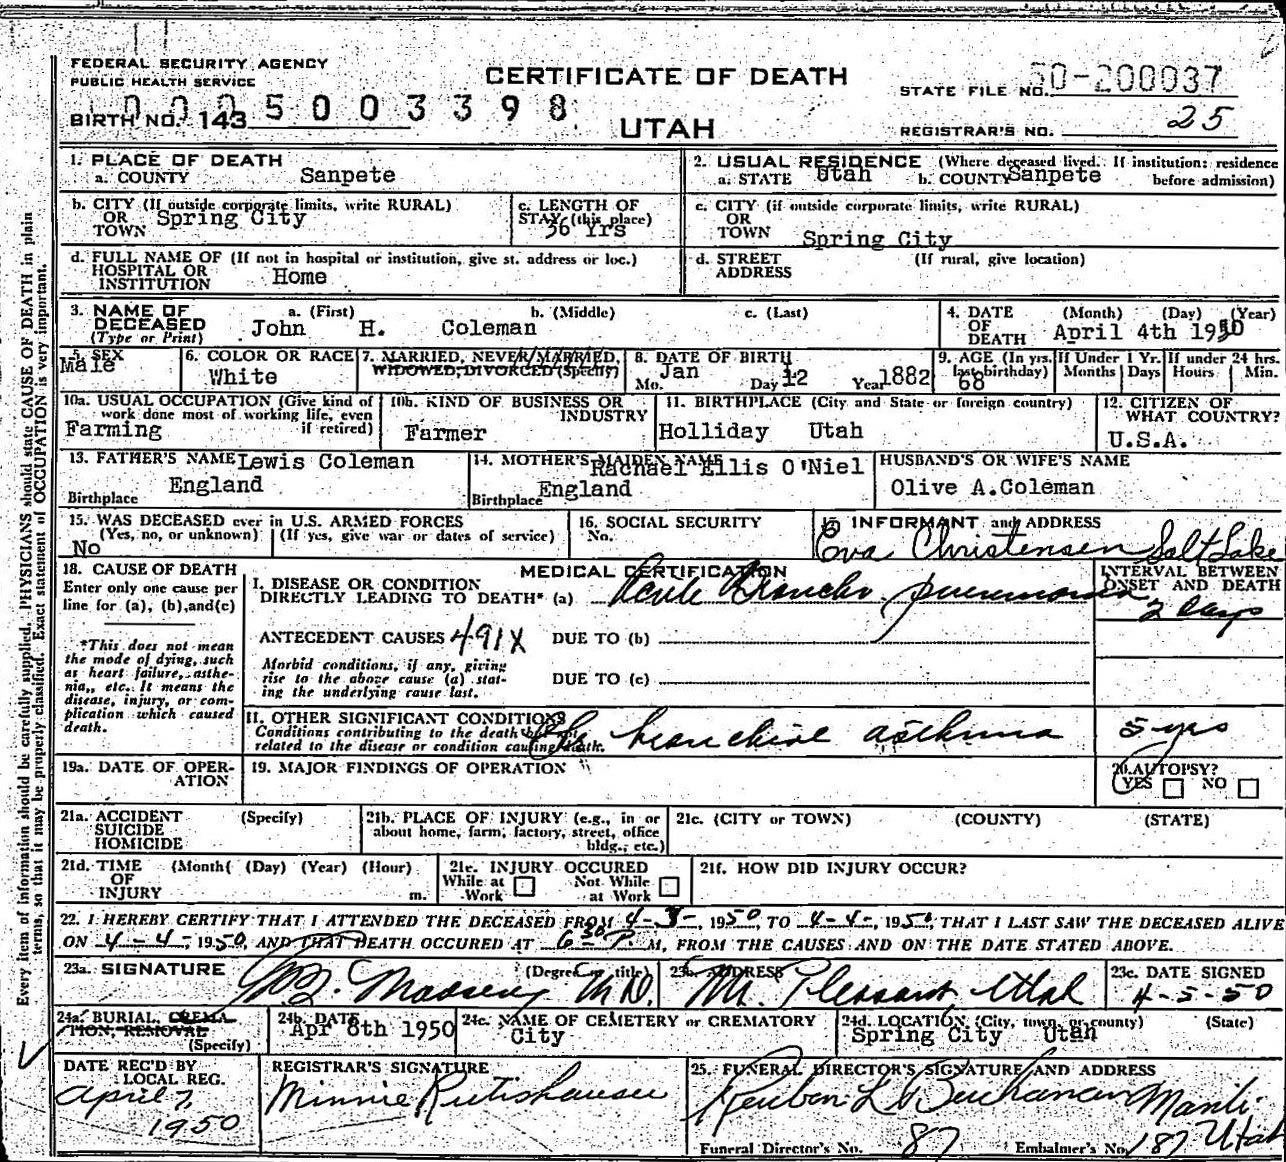 FEDERAL SECURITY AGENCY
PUBLIC HEALTH SERVICE
CERTIFICATE OF DEATH
UTAH
STATE FILE NO. 50-200037
0005003398
BIRTH NO. 143
REGISTRAR'S NO. 25
Every item of information should be carefully supplied. PHYSICIANS should state CAUSE OF DEATH in plain
terms, so that it may be properly classified. Exact statement of OCCUPATION is very important.
1. PLACE OF DEATH
a. COUNTY Sanpete
2. USUAL RESIDENCE (Where deceased lived. If institution: residence
a. STATE Utah b. COUNTY Sanpete before admission)
b. CITY (If outside corporate limits, write RURAL)
OR
TOWN Spring City
c. LENGTH OF
STAY (this place)
56 Yrs
c. CITY (if outside corporate limits, write RURAL)
OR
TOWN Spring City
d. FULL NAME OF (If not in hospital or institution, give st. address or loc.)
HOSPITAL OR
INSTITUTION Home
d. STREET (If rural, give location)
ADDRESS
3. NAME OF a. (First) b. (Middle) c. (Last)
DECEASED
(Type or Print) John H. Coleman
4. DATE (Month) (Day) (Year)
OF
DEATH April 4th 1950
5. SEX
Male
6. COLOR OR RACE
White
7. MARRIED, NEVER MARRIED,
WIDOWED, DIVORCED (Specify)
8. DATE OF BIRTH
Mo. Jan Day 12 Year 1882
9. AGE (In yrs. last birthday)
68
If Under 1 Yr.
Months Days
If under 24 hrs.
Hours Min.
10a. USUAL OCCUPATION (Give kind of
work done most of working life, even
if retired)
Farming
10b. KIND OF BUSINESS OR
INDUSTRY
Farmer
11. BIRTHPLACE (City and State or foreign country)
Holliday Utah
12. CITIZEN OF
WHAT COUNTRY?
U.S.A.
13. FATHER'S NAME Lewis Coleman
Birthplace England
14. MOTHER'S MAIDEN NAME
Rachael Ellis O'Niel
Birthplace England
HUSBAND'S OR WIFE'S NAME
Olive A.Coleman
15. WAS DECEASED ever in U.S. ARMED FORCES
(Yes, no, or unknown) (If yes, give war or dates of service)
No
16. SOCIAL SECURITY
No.
17. INFORMANT and ADDRESS
Eva Christensen Salt Lake
18. CAUSE OF DEATH
Enter only one cause per
line for (a), (b),and(c)
*This does not mean
the mode of dying, such
as heart failure, asthe-
nia, etc. It means the
disease, injury, or com-
plication which caused
death.
MEDICAL CERTIFICATION
I. DISEASE OR CONDITION
DIRECTLY LEADING TO DEATH* (a) Acute Broncho pneumonia
INTERVAL BETWEEN
ONSET AND DEATH
2 days
ANTECEDENT CAUSES 491X DUE TO (b)
Morbid conditions, if any, giving
rise to the above cause (a) stat-
ing the underlying cause last.
DUE TO (c)
II. OTHER SIGNIFICANT CONDITIONS
Conditions contributing to the death but not
related to the disease or condition causing death.
bronchial asthma 5 yrs
19a. DATE OF OPER-
ATION
19. MAJOR FINDINGS OF OPERATION
20. AUTOPSY?
YES NO
21a. ACCIDENT (Specify)
SUICIDE
HOMICIDE
21b. PLACE OF INJURY (e.g., in or
about home, farm, factory, street, office
bldg., etc.)
21c. (CITY or TOWN) (COUNTY) (STATE)
21d. TIME (Month( (Day) (Year) (Hour)
OF
INJURY m.
21e. INJURY OCCURED
While at Work Not While at Work
21f. HOW DID INJURY OCCUR?
22. I HEREBY CERTIFY THAT I ATTENDED THE DECEASED FROM 4-3-, 1950, TO 4-4-, 1950, THAT I LAST SAW THE DECEASED ALIVE
ON 4-4-, 1950, AND THAT DEATH OCCURED AT 6 30 P. M, FROM THE CAUSES AND ON THE DATE STATED ABOVE.
23a. SIGNATURE (Degree or title)
Madsen M.D.
23b. ADDRESS
Mt. Pleasant, Utah
23c. DATE SIGNED
4-5-50
24a. BURIAL, CREMA-
TION, REMOVAL
(Specify)
24b. DATE
Apr 8th 1950
24c. NAME OF CEMETERY or CREMATORY
City
24d. LOCATION (City, town, or county) (State)
Spring City Utah
DATE REC'D BY
LOCAL REG.
April 7,
1950
REGISTRAR'S SIGNATURE
Minnie Rutishauser
25. FUNERAL DIRECTOR'S SIGNATURE AND ADDRESS
Reuben L Buchanan Manti
Utah
Funeral Director's No. 87 Embalmer's No. 187